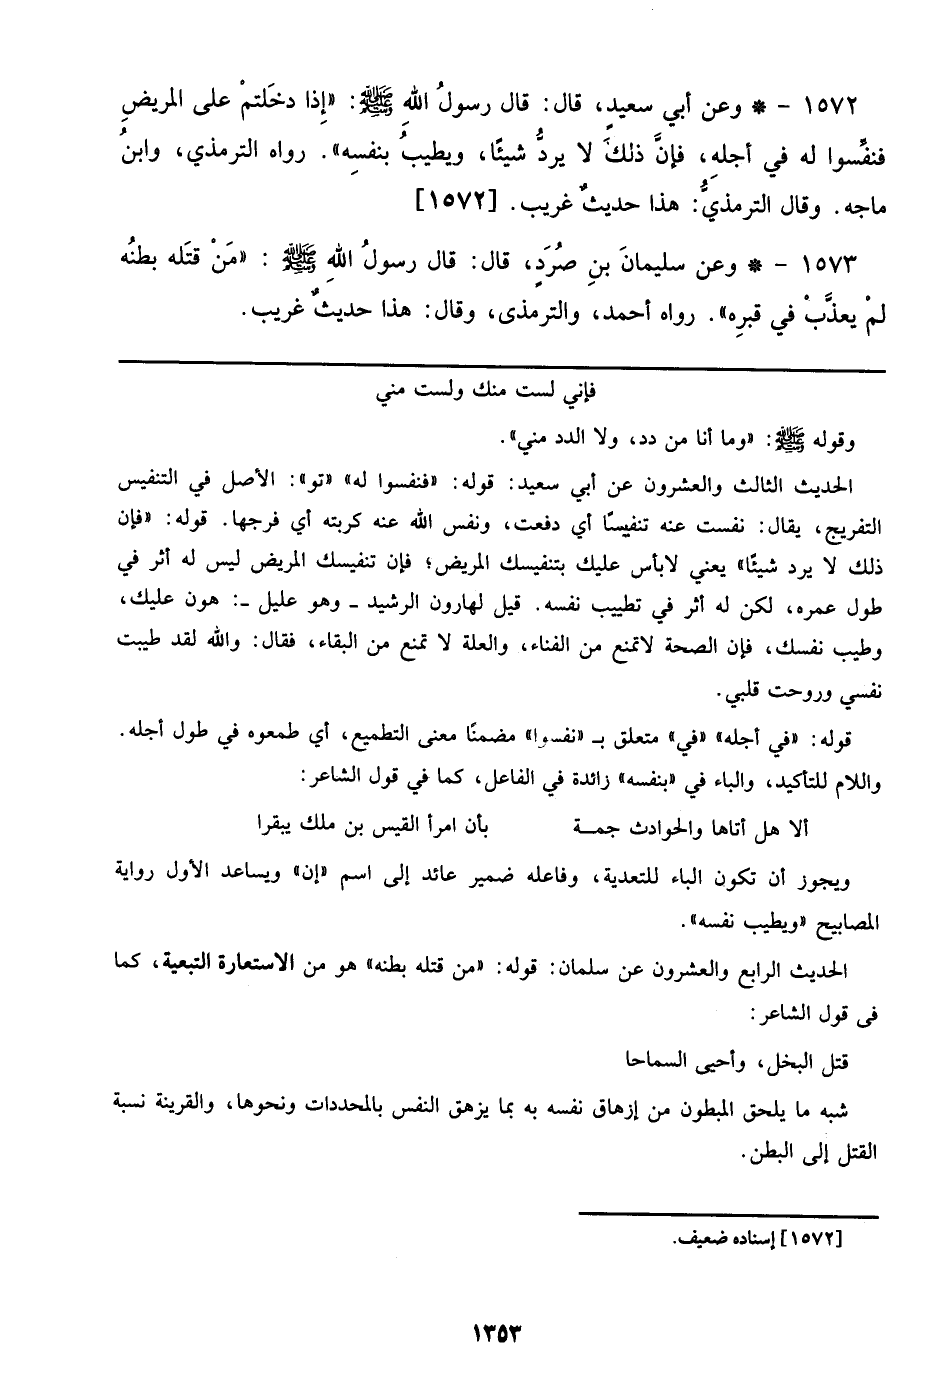 ١٥٧٢ - * وعن أبي سعيدٍ، قال: قال رسولُ اللهِ ﷺ: «إِذا دخَلتمْ على المريضِ
فنفِّسوا له في أجلهِ، فإنَّ ذلكَ لا يردُّ شيئًا، ويطيبُ بنفسهِ». رواه الترمذي، وابنُ
ماجه. وقال الترمذيُّ: هذا حديثٌ غريب. [١٥٧٢]
١٥٧٣ - * وعن سليمانَ بنِ صُرَدٍ، قال: قال رسولُ اللهِ ﷺ : «مَنْ قتَله بطنُه
لمْ يعذَّبْ في قبرِه». رواه أحمد، والترمذى، وقال: هذا حديثٌ غريب.
فإني لست منك ولست مني
وقوله ﷺ: «وما أنا من دد، ولا الدد مني».
الحديث الثالث والعشرون عن أبي سعيد: قوله: «فنفسوا له» «تو»: الأصل في التنفيس
التفريج، يقال: نفست عنه تنفيسًا أي دفعت، ونفس الله عنه كربته أي فرجها. قوله: «فإن
ذلك لا يرد شيئًا» يعني لابأس عليك بتنفيسك المريض؛ فإن تنفيسك المريض ليس له أثر في
طول عمره، لكن له أثر في تطييب نفسه. قيل لهارون الرشيد ـ وهو عليل ـ: هون عليك،
وطيب نفسك، فإن الصحة لاتمنع من الفناء، والعلة لا تمنع من البقاء، فقال: والله لقد طيبت
نفسي وروحت قلبي.
قوله: «في أجله» «في» متعلق بـ «نفسوا» مضمنًا معنى التطميع، أي طمعوه في طول أجله.
واللام للتأكيد، والباء في «بنفسه» زائدة في الفاعل، كما في قول الشاعر:
ألا هل أتاها والحوادث جمـــة بأن امرأ القيس بن ملك يبقرا
ويجوز أن تكون الباء للتعدية، وفاعله ضمير عائد إلى اسم «إن» ويساعد الأول رواية
المصابيح «ويطيب نفسه».
الحديث الرابع والعشرون عن سلمان: قوله: «من قتله بطنه» هو من الاستعارة التبعية، كما
فى قول الشاعر:
قتل البخل، وأحيى السماحا
شبه ما يلحق المبطون من إزهاق نفسه به بما يزهق النفس بالمحددات ونحوها، والقرينة نسبة
القتل إلى البطن.
[١٥٧٢] إسناده ضعيف.
١٣٥٣